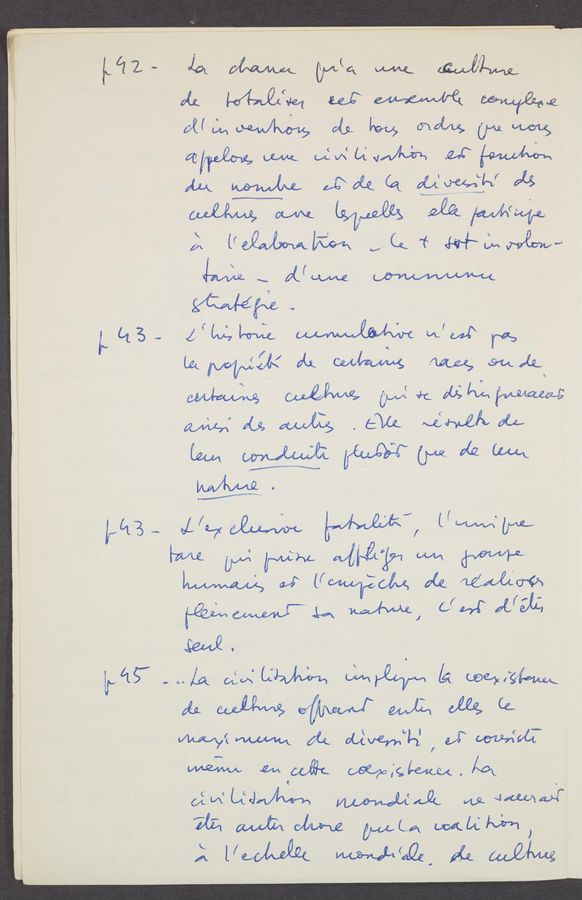 p 42 - La chance qu'a une culture
de totaliser cet ensemble complexe
d'inventions de tous ordres que nous
appelons une civilisation est fonction
du nombre et de la diversité des
cultures avec lesquelles elle participe
à l'elaboration - le + svt involon-
taire - d'une commune
stratégie -
p 43 - L'histoire cumulative n'est pas
la propriété de certaines races ou de
certaines cultures qui se distingueraient
ainsi des autres. Elle résulte de
leur conduite plutôt que de leur
nature.
p 43 - L'exclusive fatalité, l'unique
tare qui puisse affliger un groupe
humain et l'empêcher de réaliser
pleinement sa nature, c'est d'être
seul.
p 45 - ..La civilisation implique la coexistence
de cultures offrant entre elles le
maximum de diversité, et consiste
même en cette coexistence. La
civilisation mondiale ne saurait
être autre chose que la coalition,
à l'echelle mondiale, de cultures